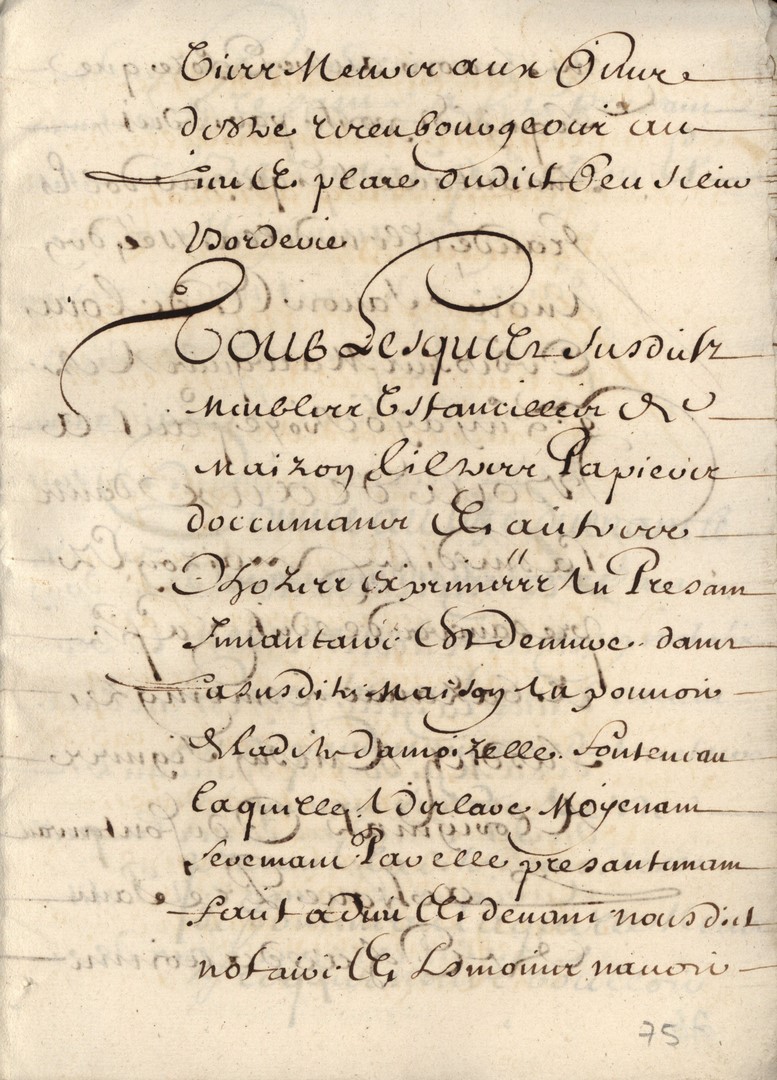 Tiers Menoir aux Sieurs
dosne et Rembourgeoir au
lieu et place dudict feu sieur
Borderie
Tous Lesquels susdictz
Meubles Estancilles de
Maizon tiltres Papiers
documans et autres
Chozes exprimées au Presant
Inventaire Est demuré dans
la susdite Maison en pouvoir
de ladite damoizelle Fonteneau
laquelle a declaré Moyenant
serement Par elle presantemant
fait a dieu et devant nousdict
notaire et tesmoins navoir
75